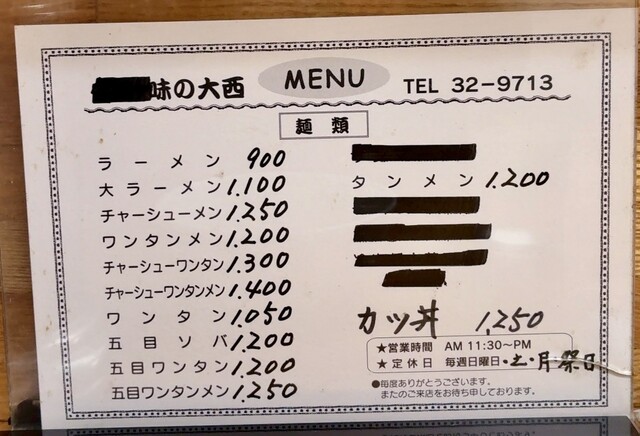 味の大西 MENU TEL 32-9713
麺類
ラーメン 900
大ラーメン 1.100
チャーシューメン 1.250
ワンタンメン 1.200
チャーシューワンタン 1.300
チャーシューワンタンメン 1.400
ワンタン 1.050
五目ソバ 1.200
五目ワンタン 1.200
五目ワンタンメン 1.250
タンメン 1.200
カツ丼 1,250
★営業時間 AM 11:30～PM
★定休日 毎週日曜日・土・月祭日
●毎度ありがとうございます。
またのご来店をお待ち申しております。